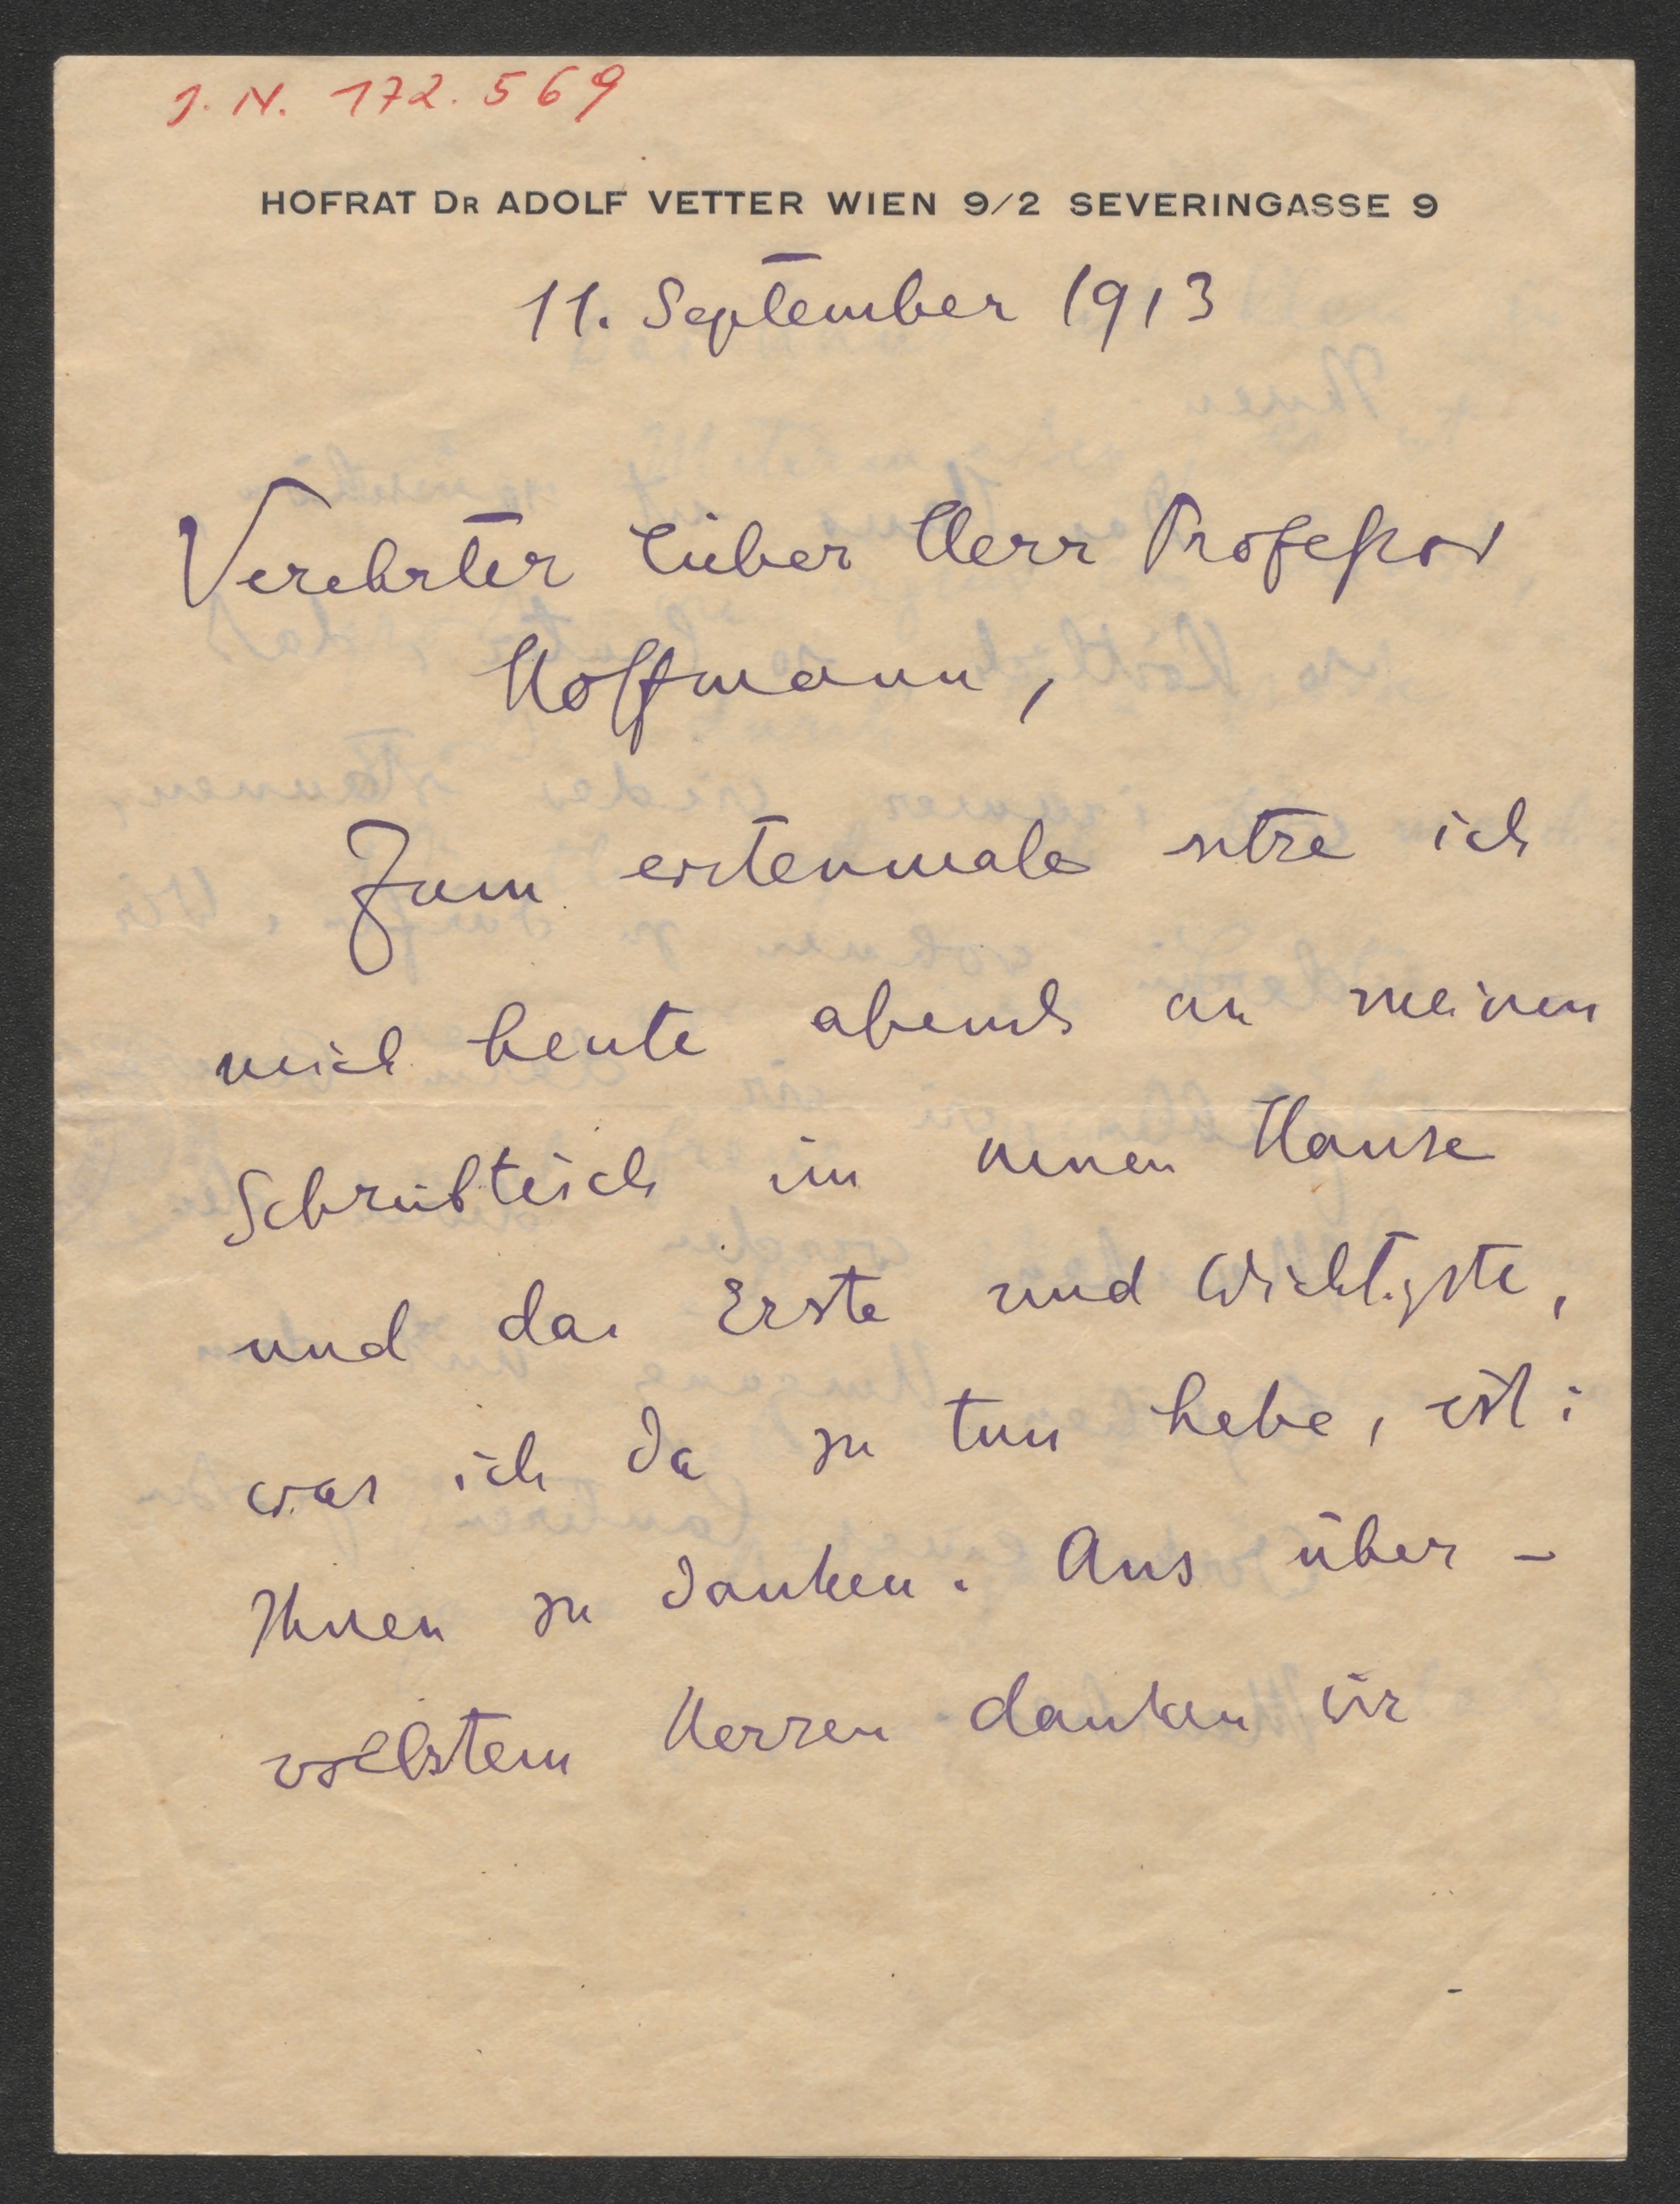 J. N. 172.569
HOFRAT DR ADOLF VETTER WIEN 9/2 SEVERINGASSE 9
11. September 1913
Verehrter lieber Herr Professor
Hoffmann,
Zum erstenmale setze ich
mich heute abends an meinen
Schreibtisch im neuen Hause
und das Erste und Wichtigste,
was ich da zu tun habe, ist:
Ihnen zu danken. Aus über-
vollstem Herzen danken wir